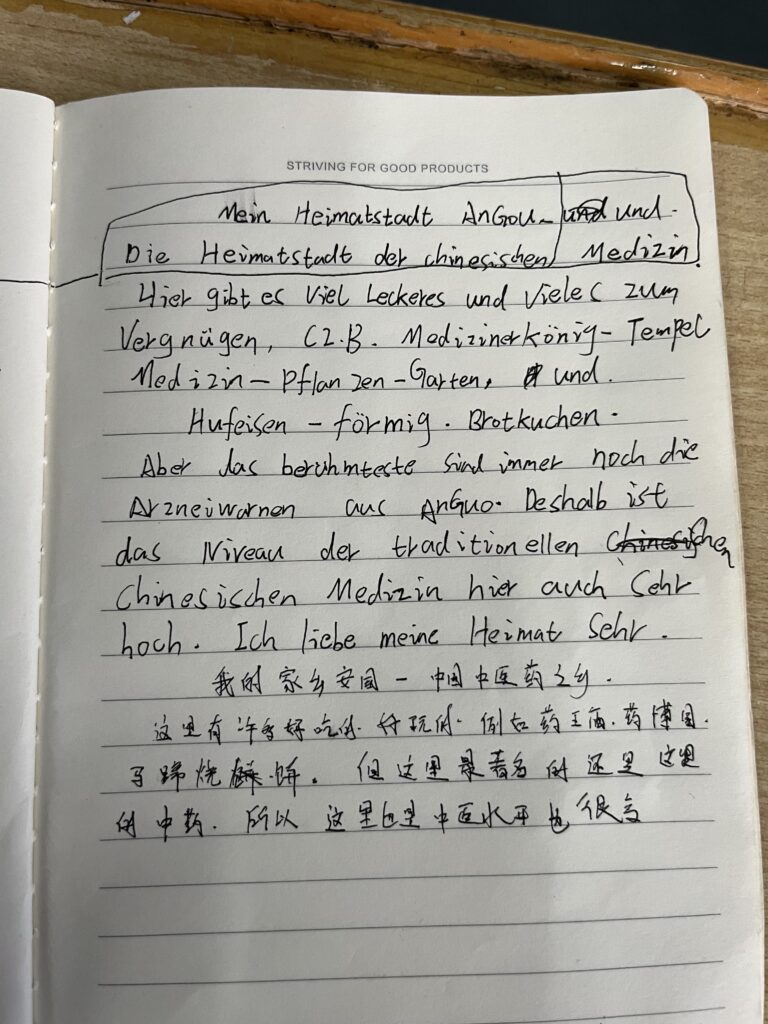 STRIVING FOR GOOD PRODUCTS
Mein Heimatstadt AnGou- und und.
Die Heimatstadt der chinesischen Medizin.
Hier gibt es viel Leckeres und vieles zum
Vergnügen, CZ.B. Medizinerkönig-Tempel
Medizin-Pflanzen-Garten, und.
Hufeisen-förmig. Brotkuchen.
Aber das berühmteste sind immer noch die
Arzneiwarnen aus AnGuo. Deshalb ist
das Niveau der traditionellen Chinesischen
Chinesischen Medizin hier auch Sehr
hoch. Ich liebe meine Heimat Sehr.
我的家乡安国-中国中医药之乡.
这里有许多好吃的.好玩的.例如药王庙.药博园.
马蹄烧饼.但这里最著名的还是这里
的中药.所以这里的中医水平也很高